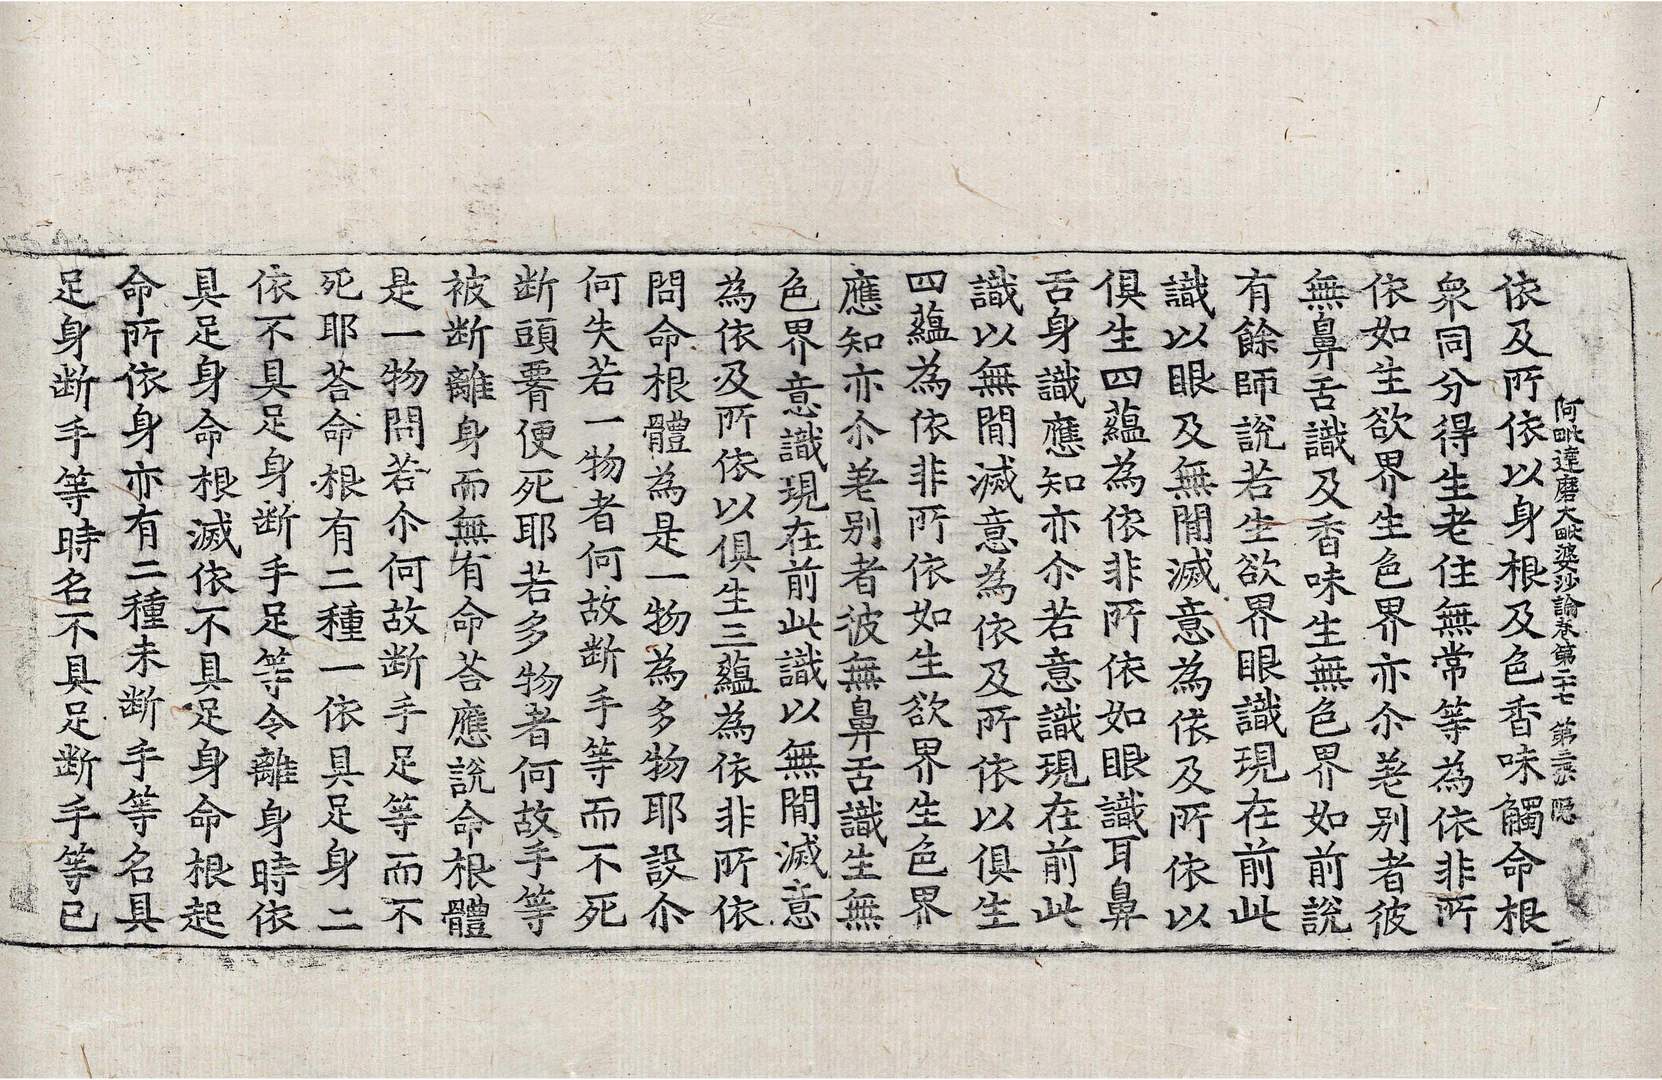 阿毗達磨大毗婆沙論卷第二十七 第三張 隱
依及所依以身根及色香味觸命根
衆同分得生老住無常等為依非所
依如生欲界生色界亦尒差別者彼
無鼻舌識及香味生無色界如前說
有餘師說若生欲界眼識現在前此
識以眼及無間滅意為依及所依以
俱生四蘊為依非所依如眼識耳鼻
舌身識應知亦尒若意識現在前此
識以無間滅意為依及所依以俱生
四蘊為依非所依如生欲界生色界
應知亦尒差別者彼無鼻舌識生無
色界意識現在前此識以無間滅意
為依及所依以俱生三蘊為依非所依
問命根體為是一物為多物耶設尒
何失若一物者何故斷手等而不死
斷頭要便死耶若多物者何故手等
被斷離身而無有命荅應說命根體
是一物問若尒何故斷手足等而不
死耶荅命根有二種一依具足身二
依不具足身斷手足等令離身時依
具足身命根滅依不具足身命根起
命所依身亦有二種未斷手等名具
足身斷手等時名不具足斷手等已